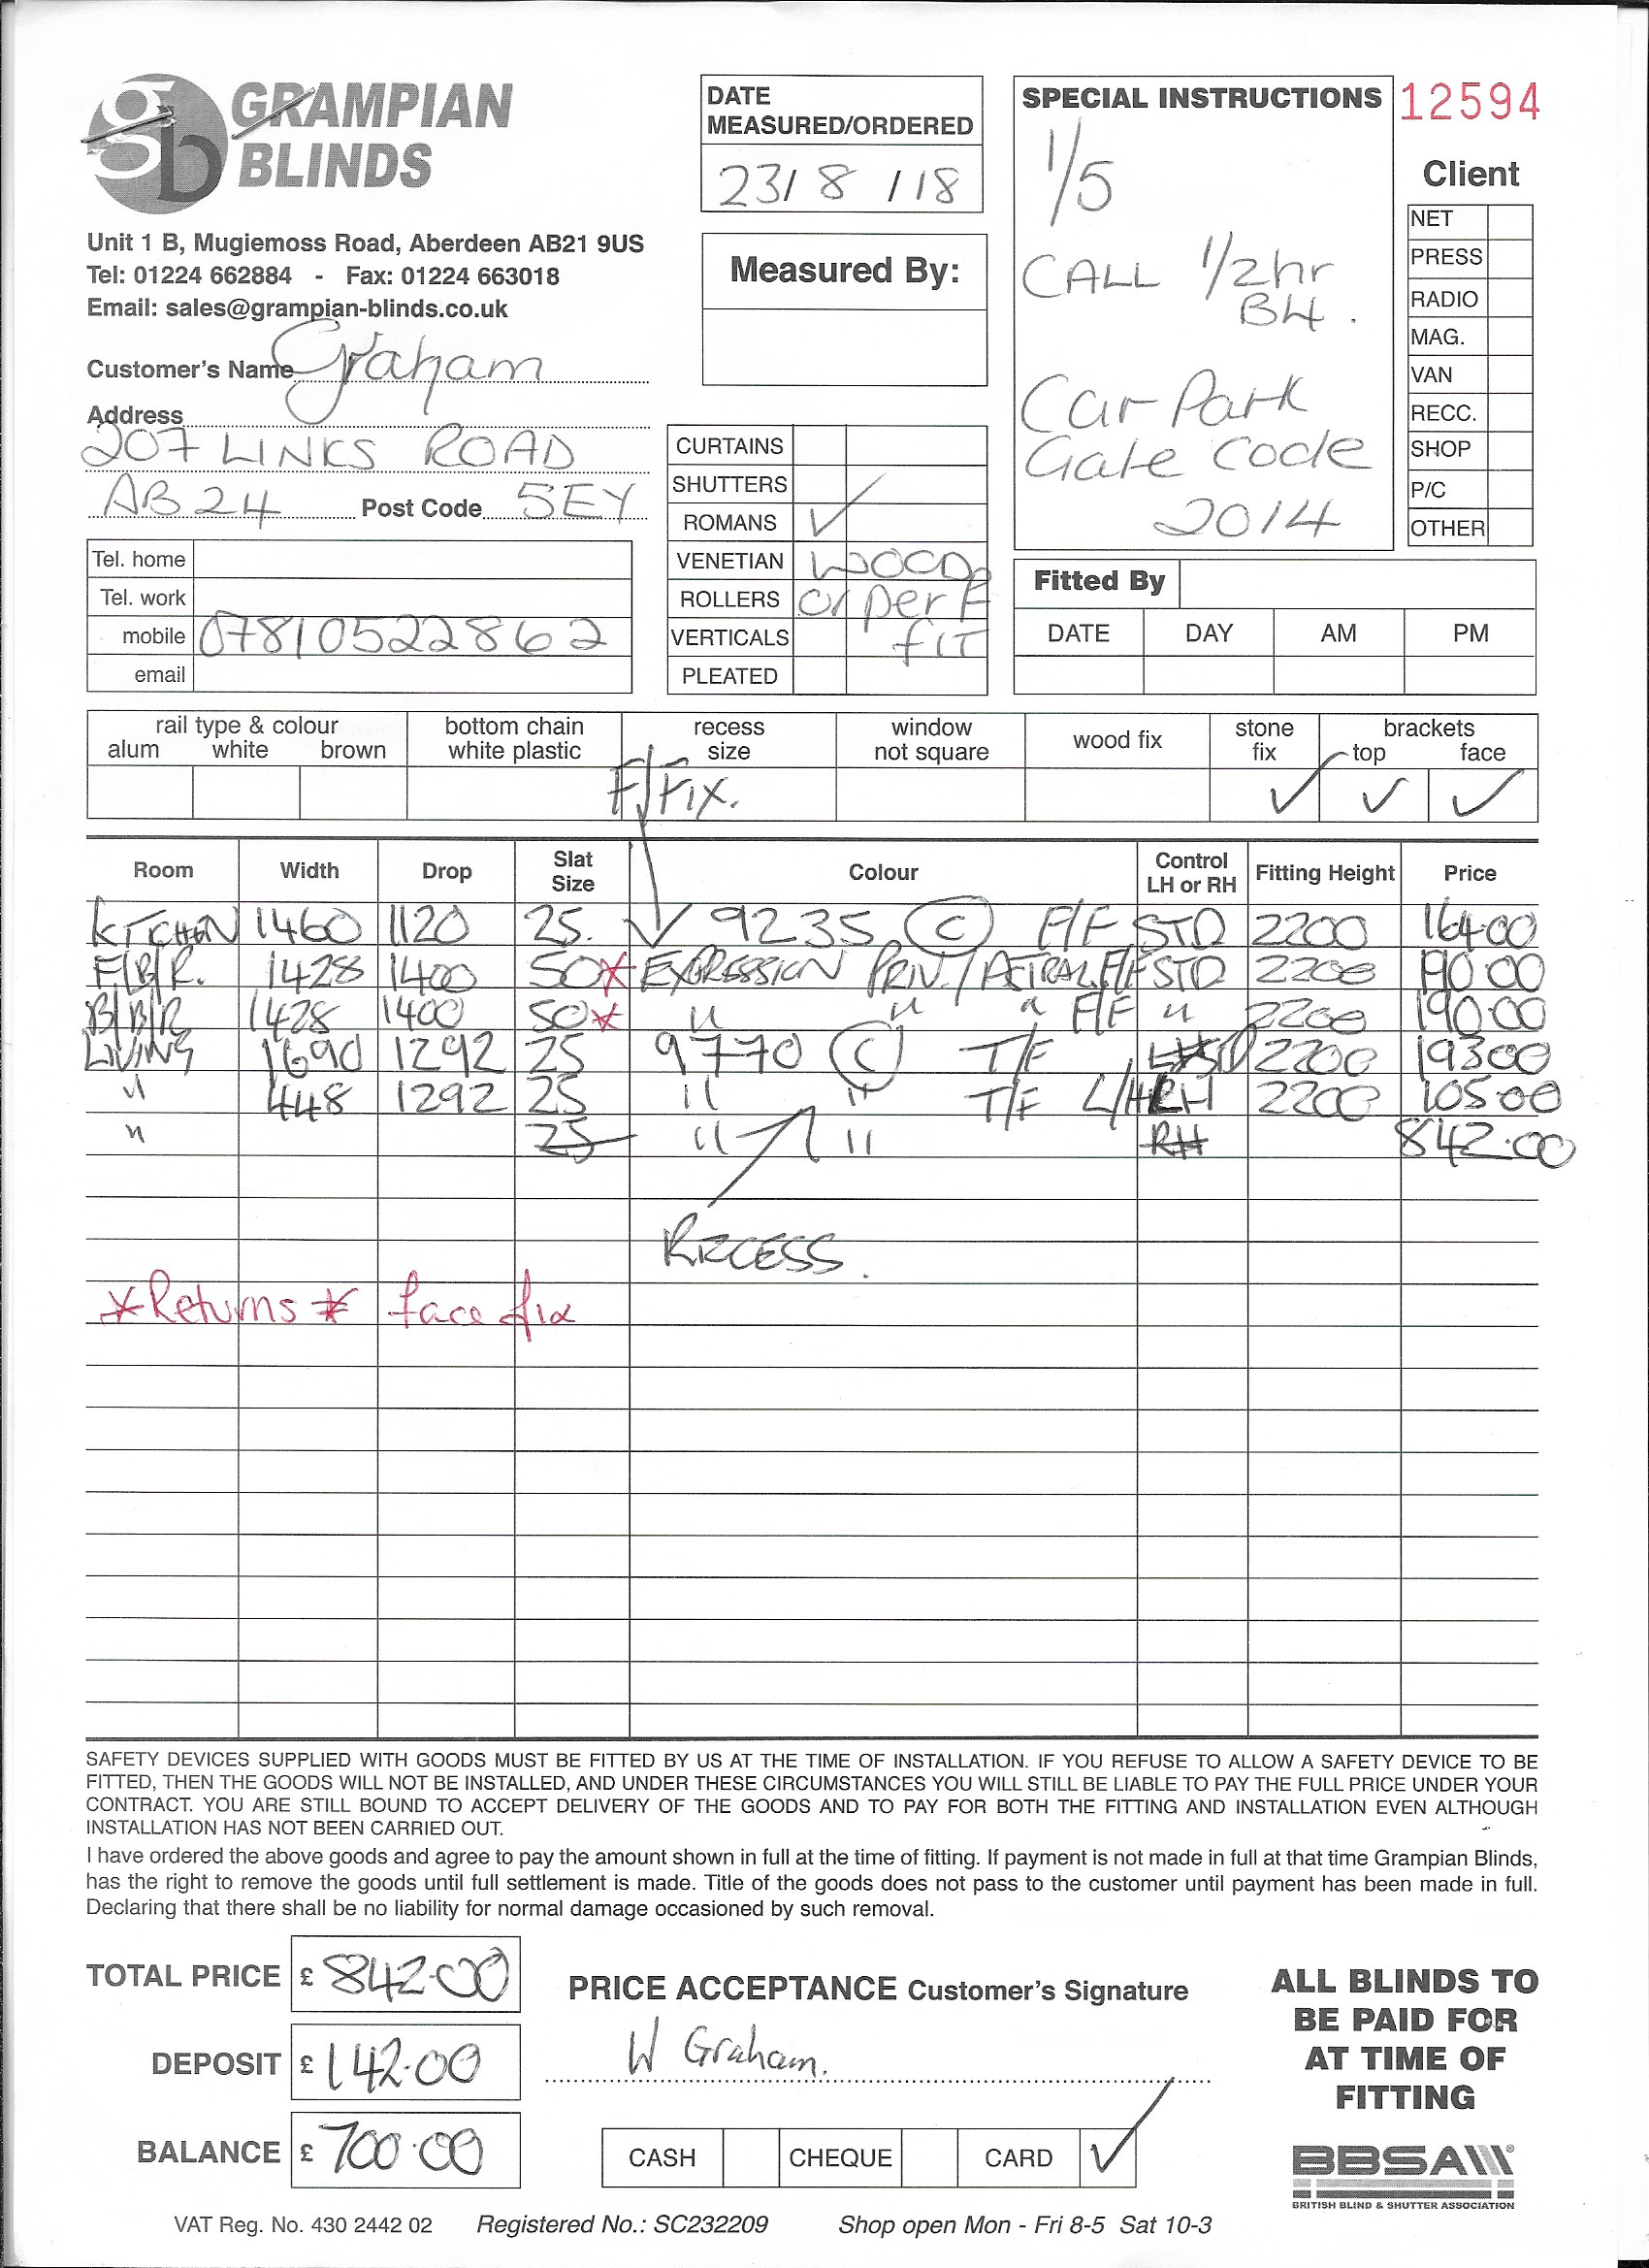 GRAMPIAN
BLINDS
Unit 1 B, Mugiemoss Road, Aberdeen AB21 9US
Tel: 01224 662884 - Fax: 01224 663018
Email: sales@grampian-blinds.co.uk
Customer's Name Graham
Address
207 LINKS ROAD
AB24 Post Code 5EY
Tel. home
Tel. work
mobile 07810522862
email
DATE
MEASURED/ORDERED
23/8/18
Measured By:
CURTAINS
SHUTTERS
ROMANS ✓
VENETIAN WOOD
ROLLERS or perF
VERTICALS fIT
PLEATED
SPECIAL INSTRUCTIONS
1/5
CALL 1/2hr
B4.
Car Park
Gate Code
2014
12594
Client
NET
PRESS
RADIO
MAG.
VAN
RECC.
SHOP
P/C
OTHER
Fitted By
DATE DAY AM PM
rail type & colour bottom chain recess window wood fix stone brackets
alum white brown white plastic size not square fix top face
F/FIX. ✓ ✓ ✓
Room Width Drop Slat Size Colour Control LH or RH Fitting Height Price
KITCHEN 1460 1120 25. 9235 (C) F/F STD 2200 164.00
F/B/R. 1428 1400 50* EXPRESSION PRIV./ASTRAL F/F STD 2200 190.00
B/B/R 1428 1400 50* " " " F/F " 2200 190.00
LIVING 1690 1292 25 9770 (C) T/F 2200 193.00
" 448 1292 25 " " T/F L/H 2200 105.00
" 25 " " RH 842.00
RECESS.
*Returns* face fix
SAFETY DEVICES SUPPLIED WITH GOODS MUST BE FITTED BY US AT THE TIME OF INSTALLATION. IF YOU REFUSE TO ALLOW A SAFETY DEVICE TO BE
FITTED, THEN THE GOODS WILL NOT BE INSTALLED, AND UNDER THESE CIRCUMSTANCES YOU WILL STILL BE LIABLE TO PAY THE FULL PRICE UNDER YOUR
CONTRACT. YOU ARE STILL BOUND TO ACCEPT DELIVERY OF THE GOODS AND TO PAY FOR BOTH THE FITTING AND INSTALLATION EVEN ALTHOUGH
INSTALLATION HAS NOT BEEN CARRIED OUT.
I have ordered the above goods and agree to pay the amount shown in full at the time of fitting. If payment is not made in full at that time Grampian Blinds,
has the right to remove the goods until full settlement is made. Title of the goods does not pass to the customer until payment has been made in full.
Declaring that there shall be no liability for normal damage occasioned by such removal.
TOTAL PRICE £ 842.00
DEPOSIT £ 142.00
BALANCE £ 700.00
PRICE ACCEPTANCE Customer's Signature
W Graham.
CASH CHEQUE CARD ✓
ALL BLINDS TO
BE PAID FOR
AT TIME OF
FITTING
BBSA
BRITISH BLIND & SHUTTER ASSOCIATION
VAT Reg. No. 430 2442 02 Registered No.: SC232209 Shop open Mon - Fri 8-5 Sat 10-3